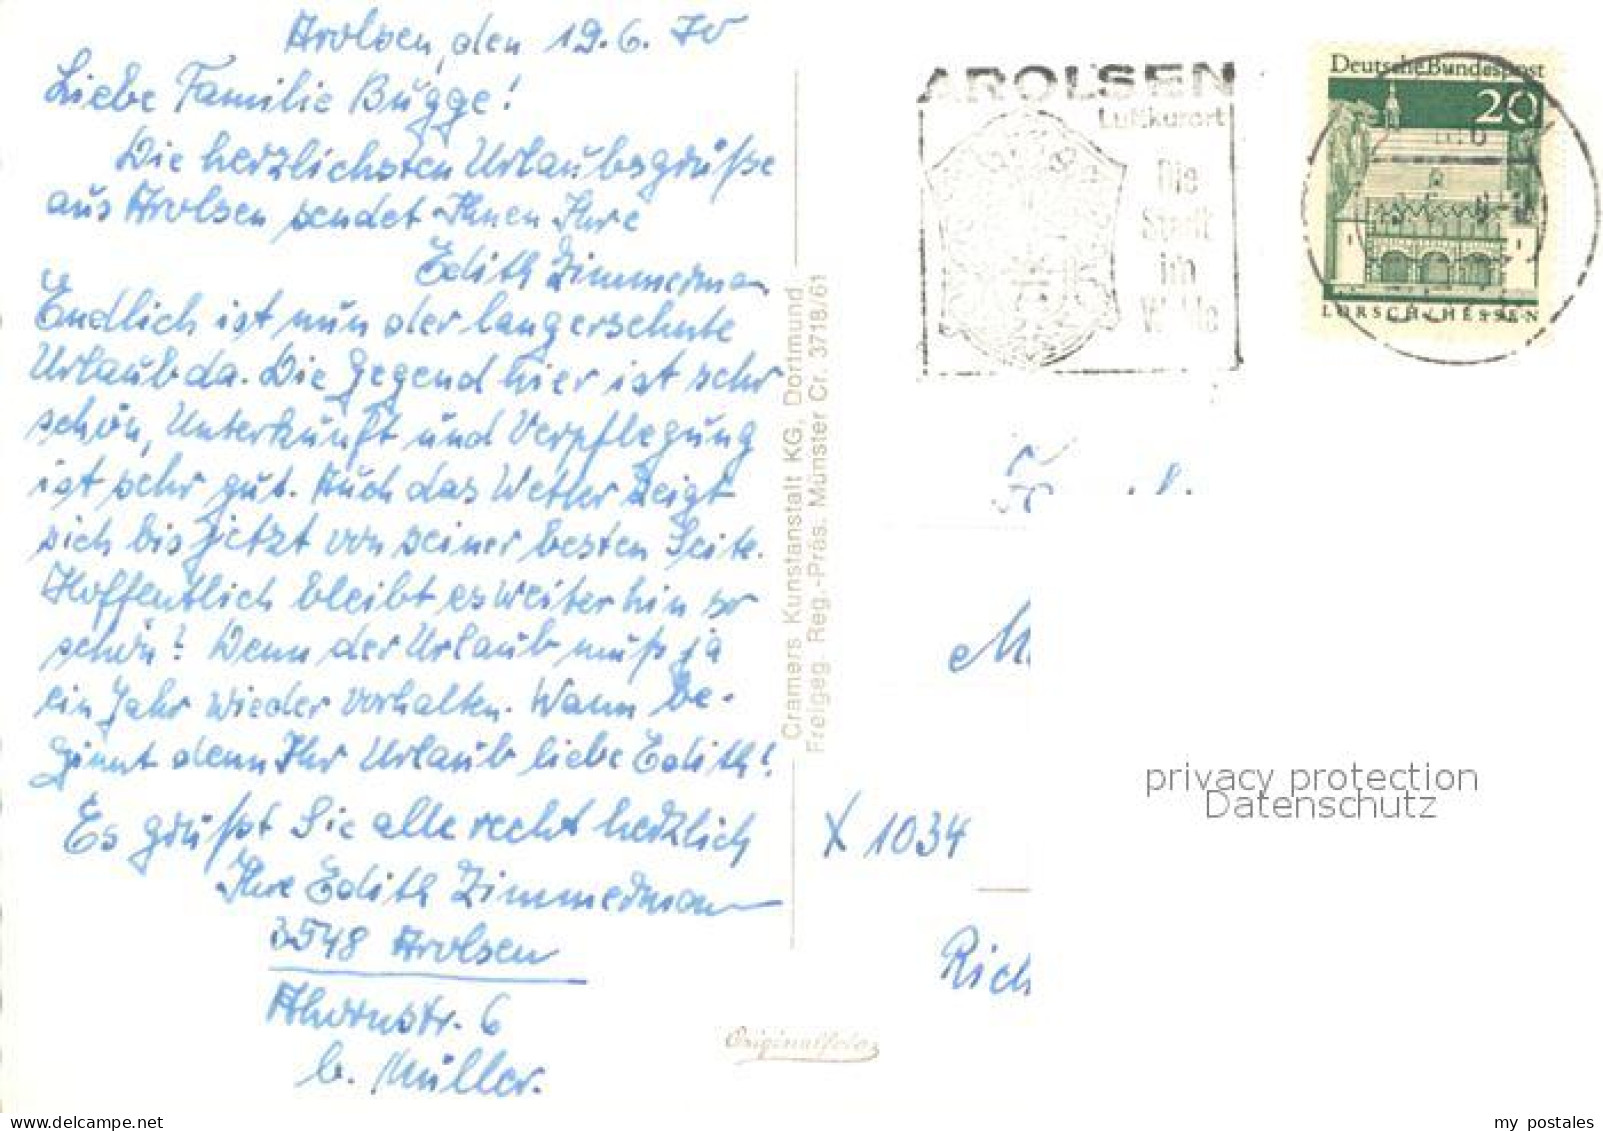 Arolsen, den 19.6.70
Liebe Familie Bugge!
Die herzlichsten Urlaubsgrüße
aus Arolsen sendet Ihnen Ihre
Edith Zimmerman
Endlich ist nun der langersehnte
Urlaub da. Die Gegend hier ist sehr
schön, Unterkunft und Verpflegung
ist sehr gut. Auch das Wetter zeigt
sich bis jetzt von seiner besten Seite.
Hoffentlich bleibt es weiterhin so
schön? Denn der Urlaub muß ja
ein Jahr wieder vorhalten. Wann be-
ginnt denn Ihr Urlaub liebe Edith?
Es grüßt Sie alle recht herzlich
Ihre Edith Zimmerman
3548 Arolsen
Ahornstr. 6
b. Müller.
Cramers Kunstanstalt KG, Dortmund
Freigeg. Reg.-Präs. Münster Cr. 3718/61
Originalfoto
AROLSEN
Luftkurort
Die
Stadt
im
Deutsche Bundespost
20
LORSCH/HESSEN
X 1034
Rich
privacy protection
Datenschutz
delcampe.net
my_postales